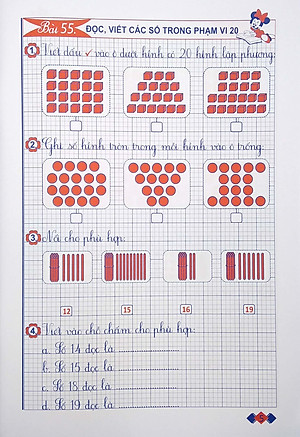 Bài 55. ĐỌC, VIẾT CÁC SỐ TRONG PHẠM VI 20
1 Viết dấu ✓ vào ô dưới hình có 20 hình lập phương:
2 Ghi số hình tròn trong mỗi hình vào ô trống:
3 Nối cho phù hợp:
12 15 16 19
4 Viết vào chỗ chấm cho phù hợp:
a. Số 14 đọc là ........................
b. Số 15 đọc là ........................
c. Số 18 đọc là ........................
d. Số 19 đọc là ........................
5